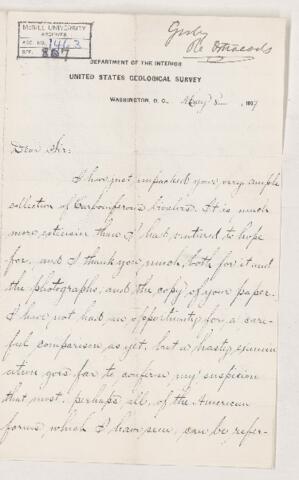 McGILL UNIVERSITY
ARCHIVES
ACC. NO. 1463
REF. 
Re Ostracods
DEPARTMENT OF THE INTERIOR
UNITED STATES GEOLOGICAL SURVEY
WASHINGTON, D. C.,
Dear Sir:
I have just unpacked your very ample
collection of Carboniferous bivalves. It is much
more extensive than I had ventured to hope
for, and I thank you much, both for it and
the photographs, and the copy of your paper.
I have not had an opportunity for a care-
ful comparison as yet, but a hasty examin
ation goes far to confirm my suspicion
that most, perhaps all, of the American
forms, which I have seen, can be refer-